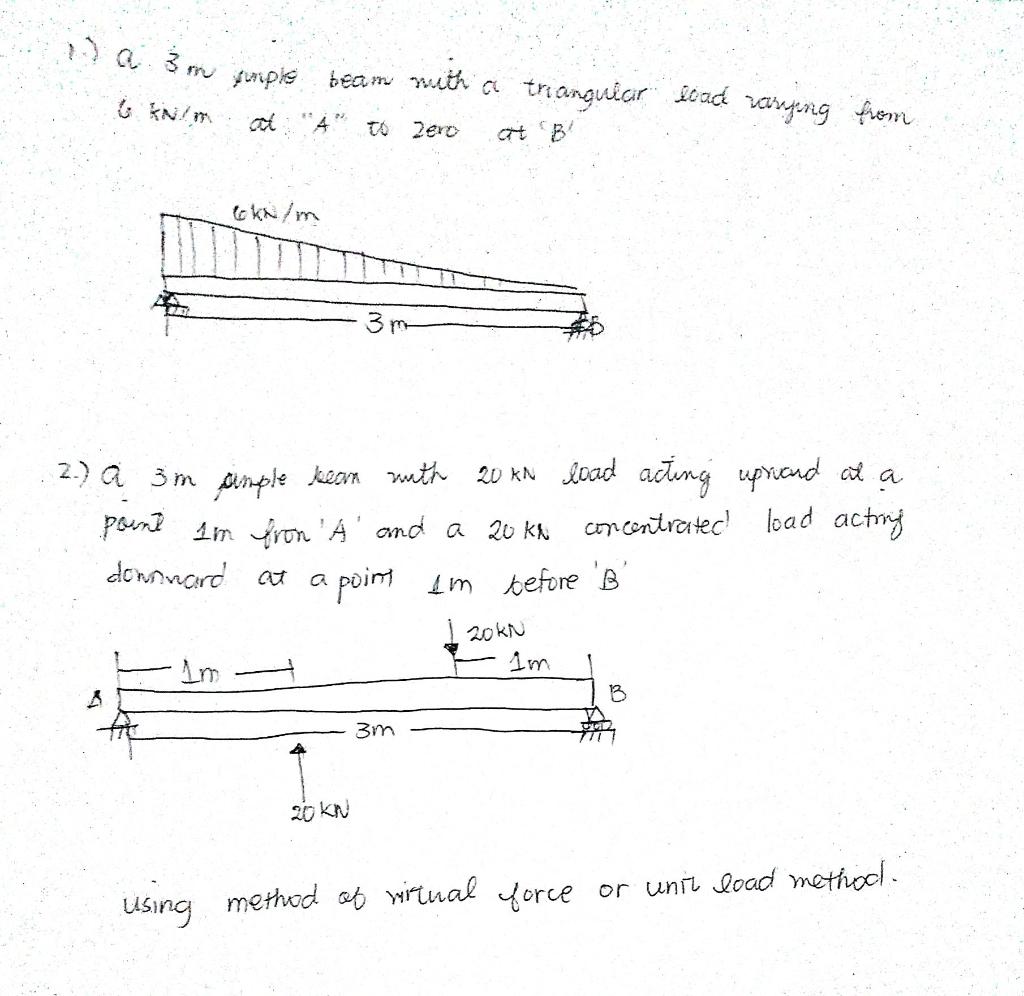 1.) a 3m simple beam with a triangular load varying from
6 kN/m at "A" to zero at 'B'
6kN/m
3m
B
2.) a 3m simple beam with 20 kN load acting upward at a
point 1m from 'A' and a 20 kN concentrated load acting
downward at a point 1m before 'B'
20KN
1m
1m
A
B
3m
20 KN
using method of virtual force or unit load method.